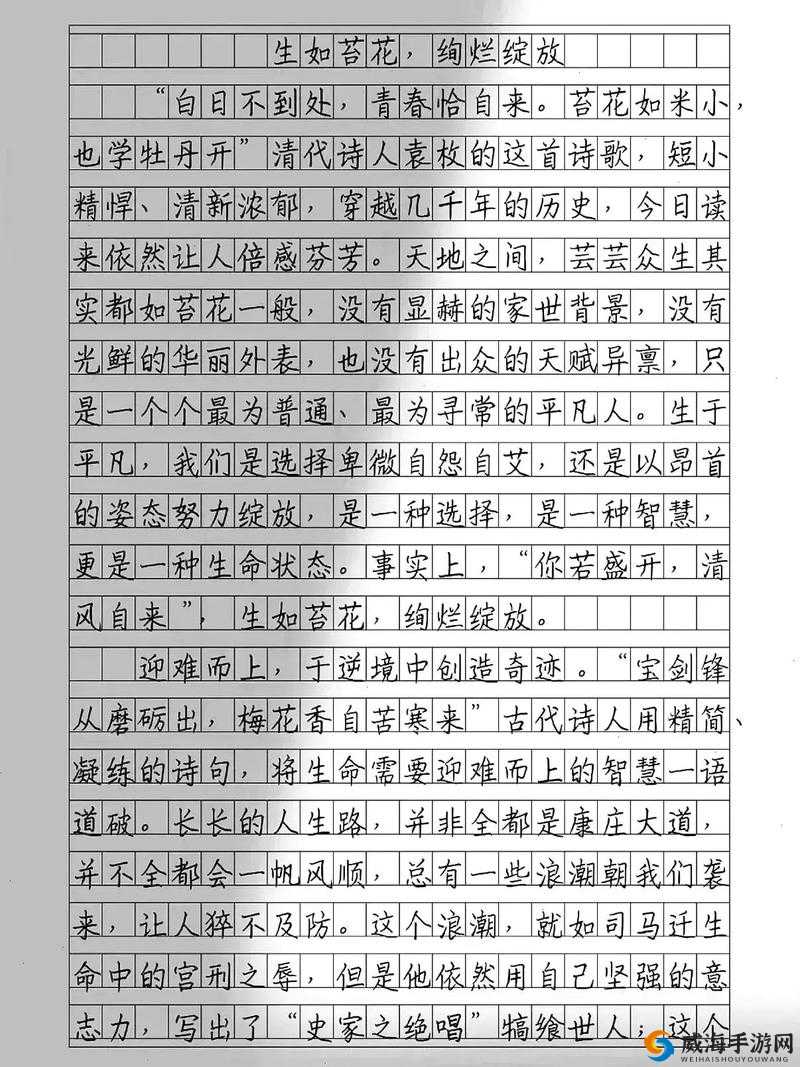 生如苔花，绚烂绽放
“白日不到处，青春恰自来。苔花如米小，
也学牡丹开”清代诗人袁枚的这首诗歌，短小
精悍、清新浓郁，穿越几千年的历史，今日读
来依然让人倍感芬芳。天地之间，芸芸众生其
实都如苔花一般，没有显赫的家世背景，没有
光鲜的华丽外表，也没有出众的天赋异禀，只
是一个个最为普通、最为寻常的平凡人。生于
平凡，我们是选择卑微自怨自艾，还是以昂首
的姿态努力绽放，是一种选择，是一种智慧，
更是一种生命状态。事实上，“你若盛开，清
风自来”，生如苔花，绚烂绽放。
迎难而上，于逆境中创造奇迹。“宝剑锋
从磨砺出，梅花香自苦寒来”古代诗人用精简、
凝练的诗句，将生命需要迎难而上的智慧一语
道破。长长的人生路，并非全都是康庄大道，
并不全都会一帆风顺，总有一些浪潮朝我们袭
来，让人猝不及防。这个浪潮，就如司马迁生
命中的宫刑之辱，但是他依然用自己坚强的意
志力，写出了“史家之绝唱”犒飨世人；这个
威海手游网
WEIHAISHOUYOUWANG